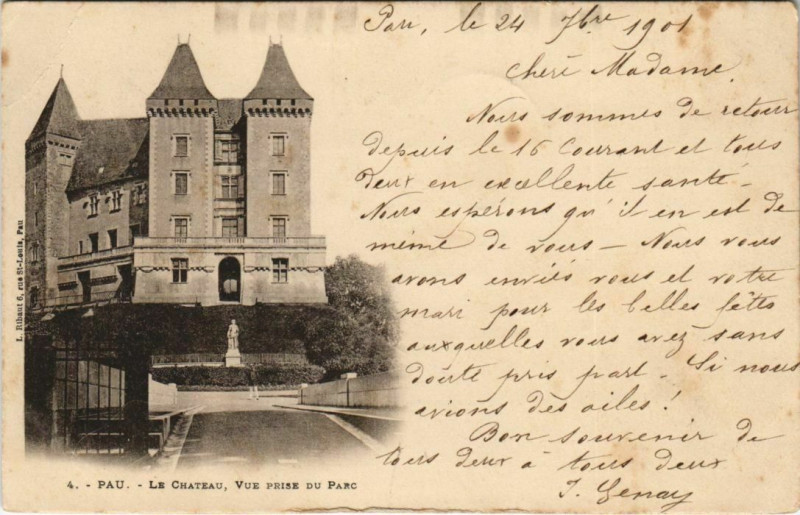 Pau, le 24 7bre 1901
Chère Madame,
Nous sommes de retour
depuis le 16 Courant et tous
deux en excellente santé -
Nous espérons qu'il en est de
même de vous - Nous vous
avons enviés vous et votre
mari pour les belles fêtes
auxquelles vous avez sans
doute pris part - Si nous
avions des ailes !
Bon souvenir de
tous deux à tous deux
L. Ribaut 6, rue St-Louis, Pau
4. - PAU. - LE CHATEAU, VUE PRISE DU PARC